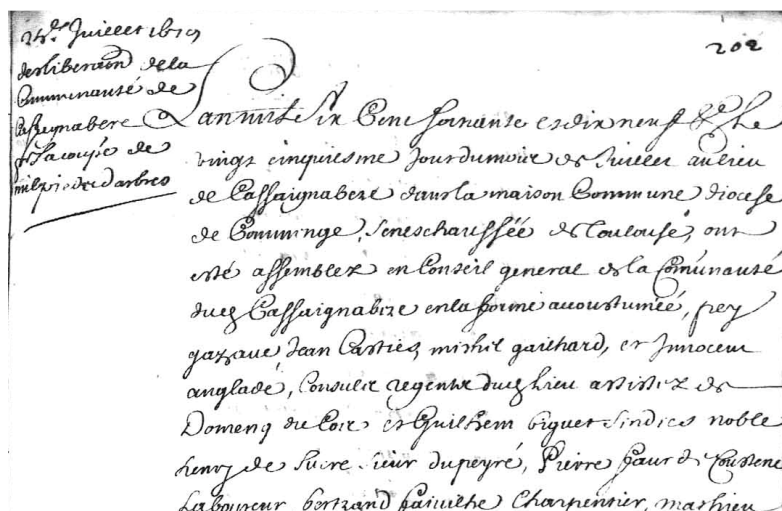 25e Juillet 1679
desliberaõn de la
Communauté de
Cassagnabere
pr la coupe de
mil pieds d'arbres
202
L'an mil six cens soixante et dix neuf & le
vingt cinquiesme jour du mois de Juillet au lieu
de Cassaignabere dans la maison Commune diocese
de Comminge, seneschaussée de Toulouse, ont
esté assemblez en Conseil general de la Comũnauté
dud Cassaignabere en la forme accoustumée,
Jean Casties, michel gailhard, et Innocent
anglade, Consulz regentz dud lieu assistez de
Domenq du Cos et Guilhem biguet sindics noble
henry de Sucre sieur dupeyré, Pierre faur de
laboureur bertrand Charpentier, mathieu